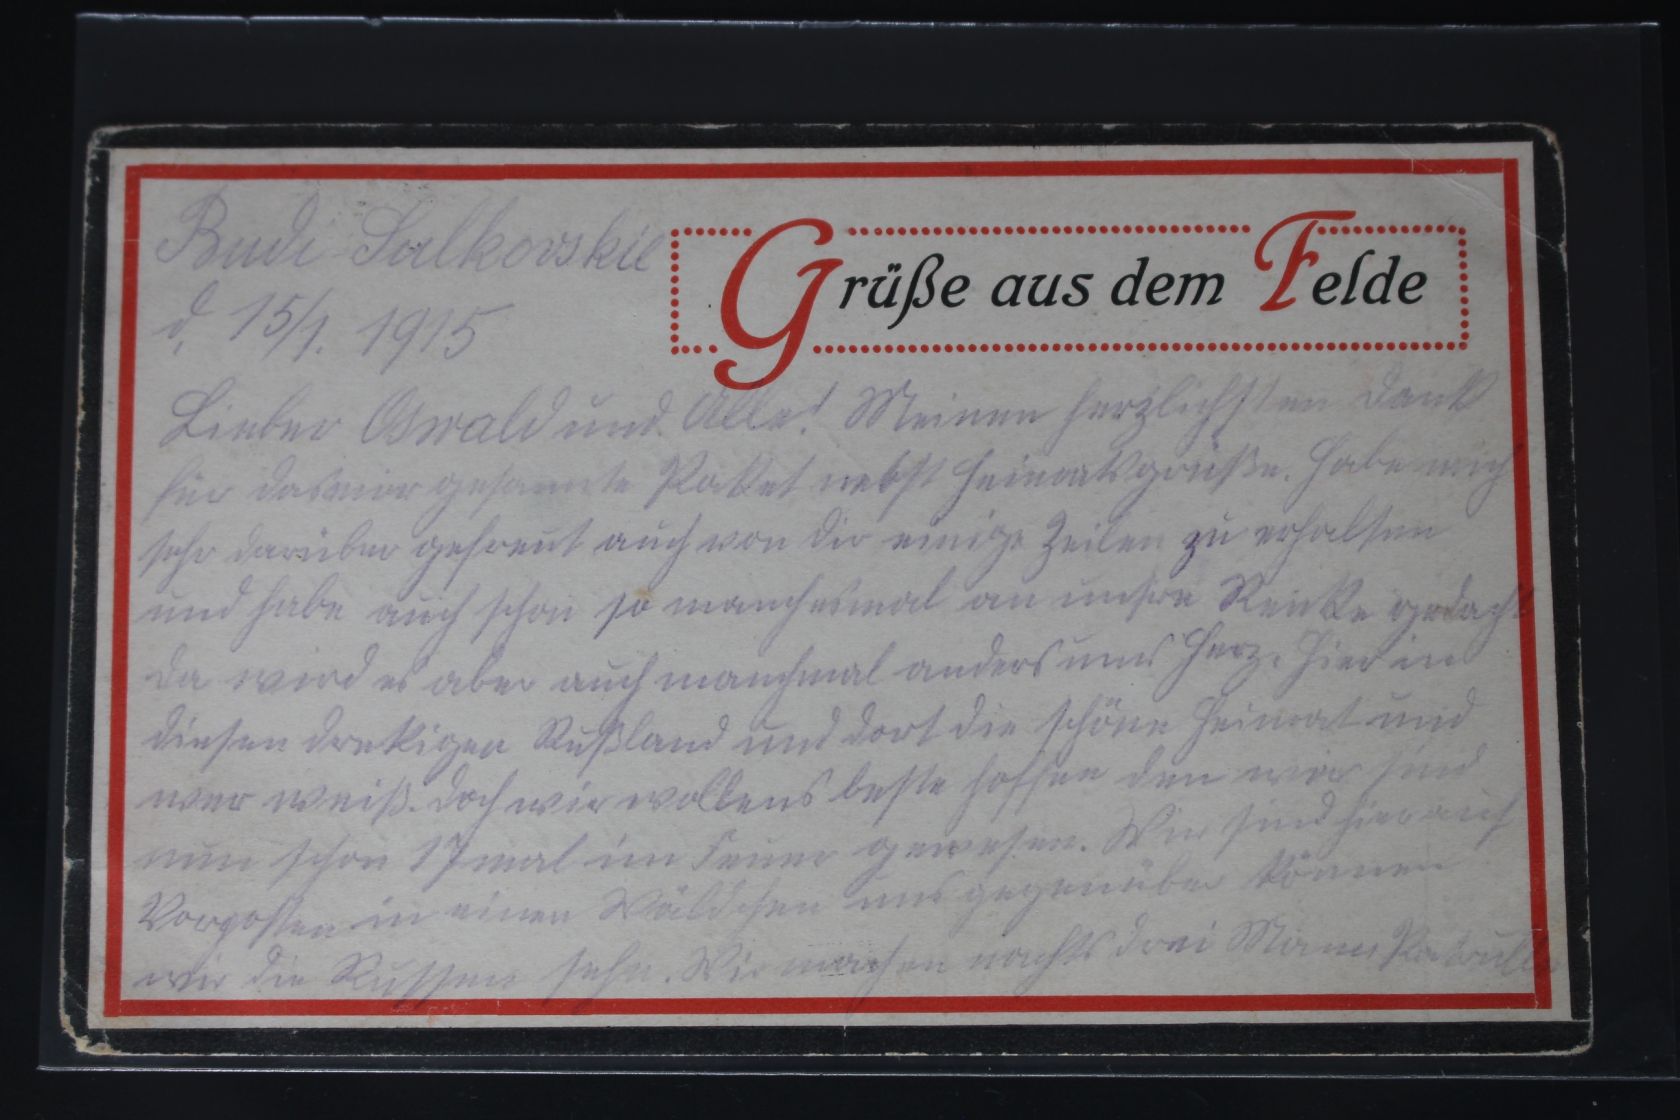 Budi Salkovskie
Grüße aus dem Felde
d. 15/1. 1915
Lieber Oswald und Alle! Meinen herzlichsten Dank
für das mir gesannte Paket nebst Heimatsgrüße. Habe mich
sehr darüber gefreut auch von dir einige Zeilen zu erhalten
und habe auch schon so manchesmal an unsre gedacht
da wird es aber auch manchmal anders ums Herz. Hier in
diesen drekigen Rußland und dort die schöne Heimat und
wer weiß. doch wir wollens beste hoffen den wir sind
nun schon 17 mal im Feuer gewesen. Wir sind hier auf
Vorposten in einen Wäldchen uns gegenüber können
wir die Russen sehn. Wir machen nachts drei Mann